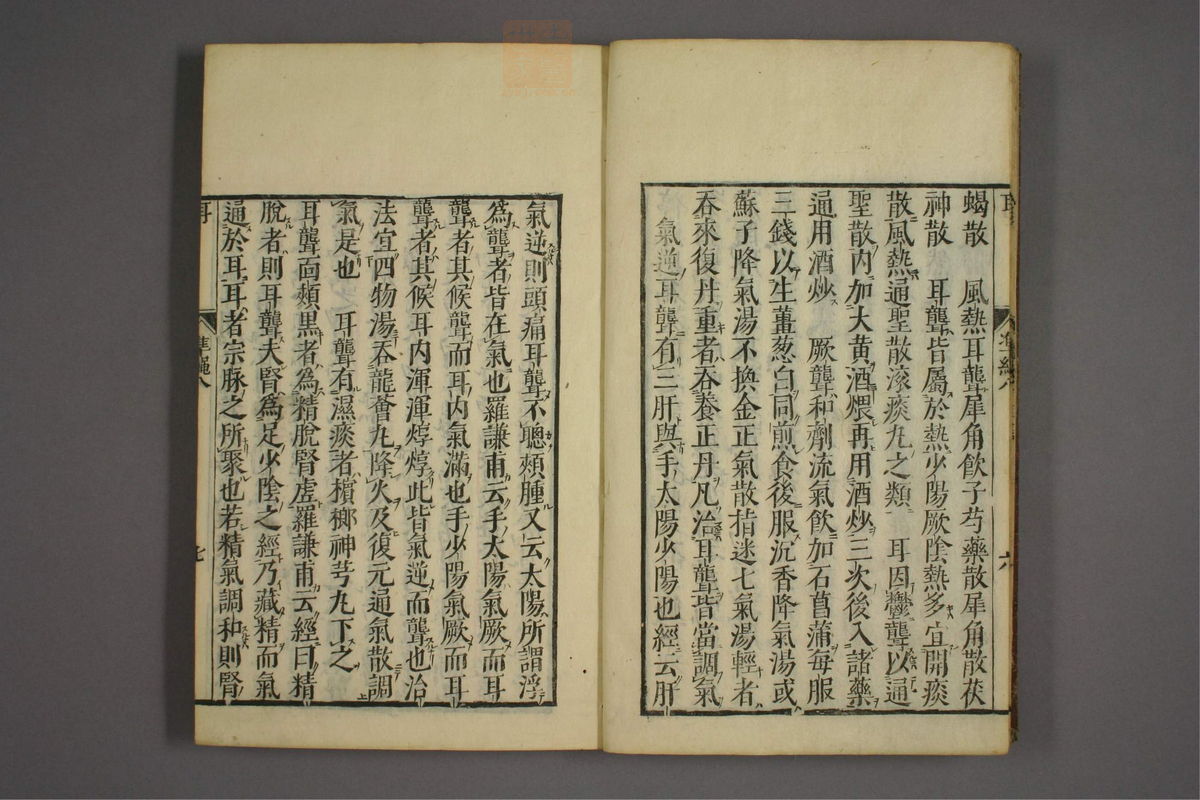 蝎散　風熱耳聾犀角飲子芍藥散犀角散茯
神散　耳聾皆屬於熱少陽厥陰熱多宜開痰
散風熱通聖散滾痰丸之類　耳因鬱聾以通
聖散内加大黄酒煨再用酒炒三次後入諸藥
通用酒炒　厥聾和劑流氣飲加石菖蒲每服
三錢以生薑葱白同煎食後服沉香降氣湯或
蘇子降氣湯不換金正氣散指迷七氣湯輕者
吞來復丹重者吞養正丹凡治耳聾皆當調氣
氣逆耳聾有三肝與手太陽少陽也經云肝
氣逆則頭痛耳聾不聰頰腫又云太陽所謂浮
為聾者皆在氣也羅謙甫云手太陽氣厥而耳
聾者其候聾而耳内氣滿也手少陽氣厥而耳
聾者其候耳内渾渾焞焞此皆氣逆而聾也治
法宜四物湯吞龍薈丸降火及復元通氣散調
氣是也　耳聾有濕痰者檳榔神芎丸下之
耳聾面頰黑者為精脫腎虛羅謙甫云經曰精
脫者則耳聾夫腎為足少陰之經乃藏精而氣
通於耳耳者宗脉之所聚也若精氣調和則腎
準繩八